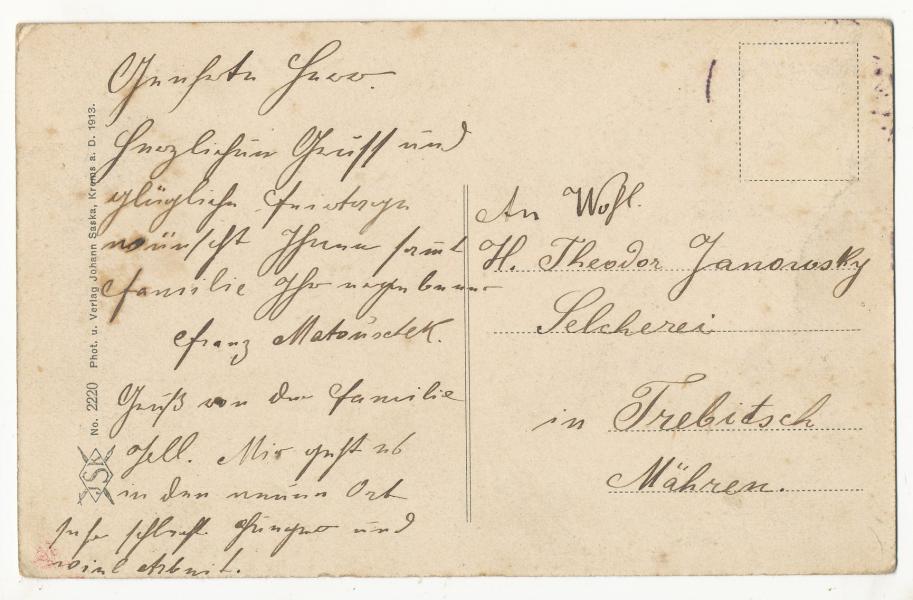 Geehrte Herr.
Herzlichen Gruß und
glügliche Feiertage
wünscht Ihnen samt
Familie Ihr ergebener
Franz Matouschek.
Gruß von der Familie
Gell. Mir geht es
in den neuen Ort
sehr schlecht Hunger und
viel Arbeit.
An Wohl.
H. Theodor Janowsky
Selcherei
in Trebitsch
Mähren.
No. 2220 Phot. u. Verlag Johann Saska, Krems a. D. 1913.
JSK